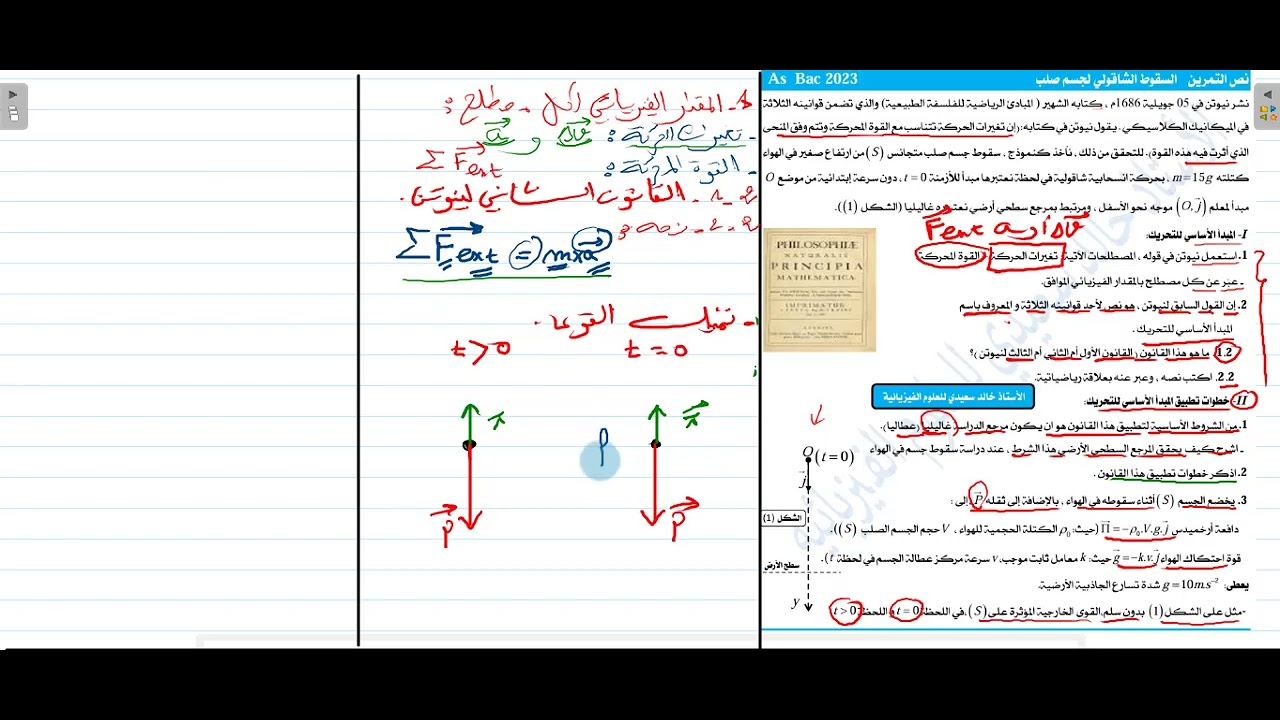 As Bac 2023
نص التمرين السقوط الشاقولي لجسم صلب
نشر نيوتن في 05 جويلية 1686م ، كتابه الشهير ( المبادئ الرياضية للفلسفة الطبيعية) والذي تضمن قوانينه الثلاثة
في الميكانيك الكلاسيكي . يقول نيوتن في كتابه: (إن تغيرات الحركة تتناسب مع القوة المحركة وتتم وفق المنحى
الذي أثرت فيه هذه القوة). للتحقق من ذلك ، نأخذ كنموذج ، سقوط جسم صلب متجانس (S) من ارتفاع صغير في الهواء
كتلته m=15g ، بحركة انسحابية شاقولية في لحظة نعتبرها مبدأ للأزمنة t = 0 ، دون سرعة إبتدائية من موضع O
مبدأ لمعلم (O, j⃗) موجه نحو الأسفل ، ومرتبط بمرجع سطحي أرضي نعتبره غاليليا (الشكل (1)).
I- المبدأ الأساسي للتحريك:
1. استعمل نيوتن في قوله ، المصطلحات الآتية تغيرات الحركة ، القوة المحركة
- عبر عن كل مصطلح بالمقدار الفيزيائي الموافق.
2. إن القول السابق لنيوتن ، هو نص لأحد قوانينه الثلاثة و المعروف باسم
المبدأ الأساسي للتحريك.
1.2. ما هو هذا القانون ( القانون الأول أم الثاني أم الثالث لنيوتن )؟
2.2. اكتب نصه ، وعبر عنه بعلاقة رياضياتية.
الأستاذ خالد سعيدي للعلوم الفيزيائية
II- خطوات تطبيق المبدأ الأساسي للتحريك:
1. من الشروط الأساسية لتطبيق هذا القانون هو ان يكون مرجع الدراسة غاليليا (عطاليا).
- اشرح كيف يحقق المرجع السطحي الأرضي هذا الشرط ، عند دراسة سقوط جسم في الهواء
2. اذكر خطوات تطبيق هذا القانون .
3. يخضع الجسم (S) أثناء سقوطه في الهواء ، بالإضافة إلى ثقله P⃗ إلى :
دافعة أرخميدس Π⃗ = −ρ₀.V.g.j⃗ (حيث: ρ₀ الكتلة الحجمية للهواء ، V حجم الجسم الصلب (S)).
قوة احتكاك الهواء g⃗ = −k.v.j⃗ حيث: k معامل ثابت موجب، v سرعة مركز عطالة الجسم في لحظة t).
يعطى: g = 10m.s⁻² شدة تسارع الجاذبية الأرضية.
-مثل على الشكل (1) بدون سلم، القوى الخارجية المؤثرة على (S) ، في اللحظة t = 0 و اللحظة t > 0
PHILOSOPHIÆ
NATURALIS
PRINCIPIA
MATHEMATICA
IMPRIMATUR
O (t = 0)
j⃗
الشكل (1)
سطح الأرض
y
1- المقدار الفيزيائي لكل مصطلح :
- تغيرات الحركة : Δv⃗ و a⃗
القوة المحركة : ΣF⃗ext
2-1- القانون الثاني لنيوتن.
2-2- نصه :
ΣF⃗ext = m×a⃗
- تمثيل القوى.
t > 0
t = 0
π⃗
P⃗
π⃗
P⃗